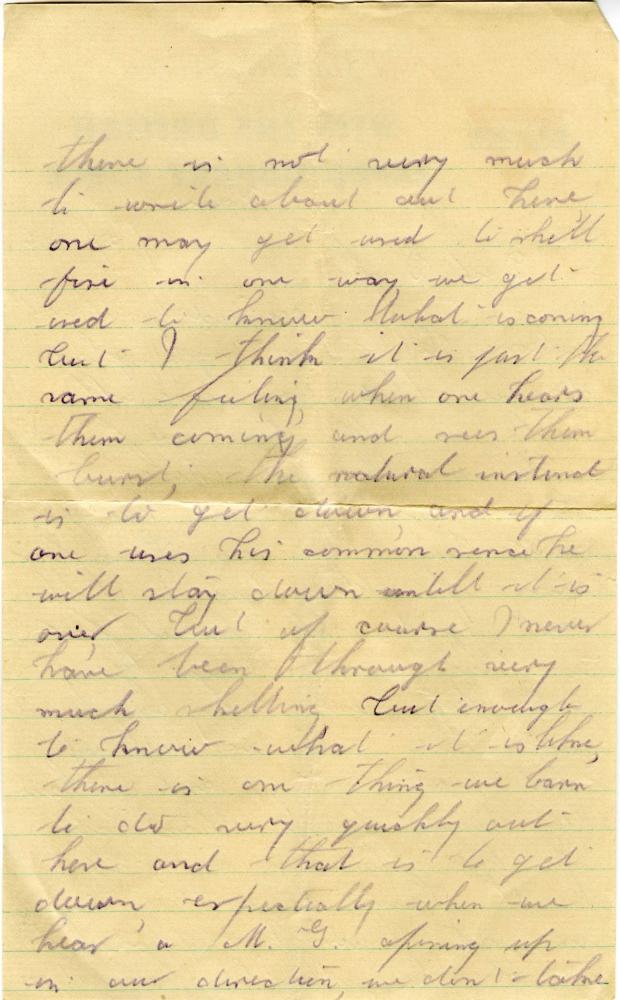 there is not very much
to write about out here
one may get used to shell
fire in one way we get
used to know what is coming
but I think it is just the
same feeling when one hears
them coming, and sees them
burst, the natural instinct
is to get down, and if
one uses his common sence he
will stay down untill it is
over but of course I never
have been through very
much shelling but enough
to know what it is like,
there is one thing we learn
to do very quickly out
here and that is to get
down, espectially when we
hear a M. G. opining up
in our direction, we don't take